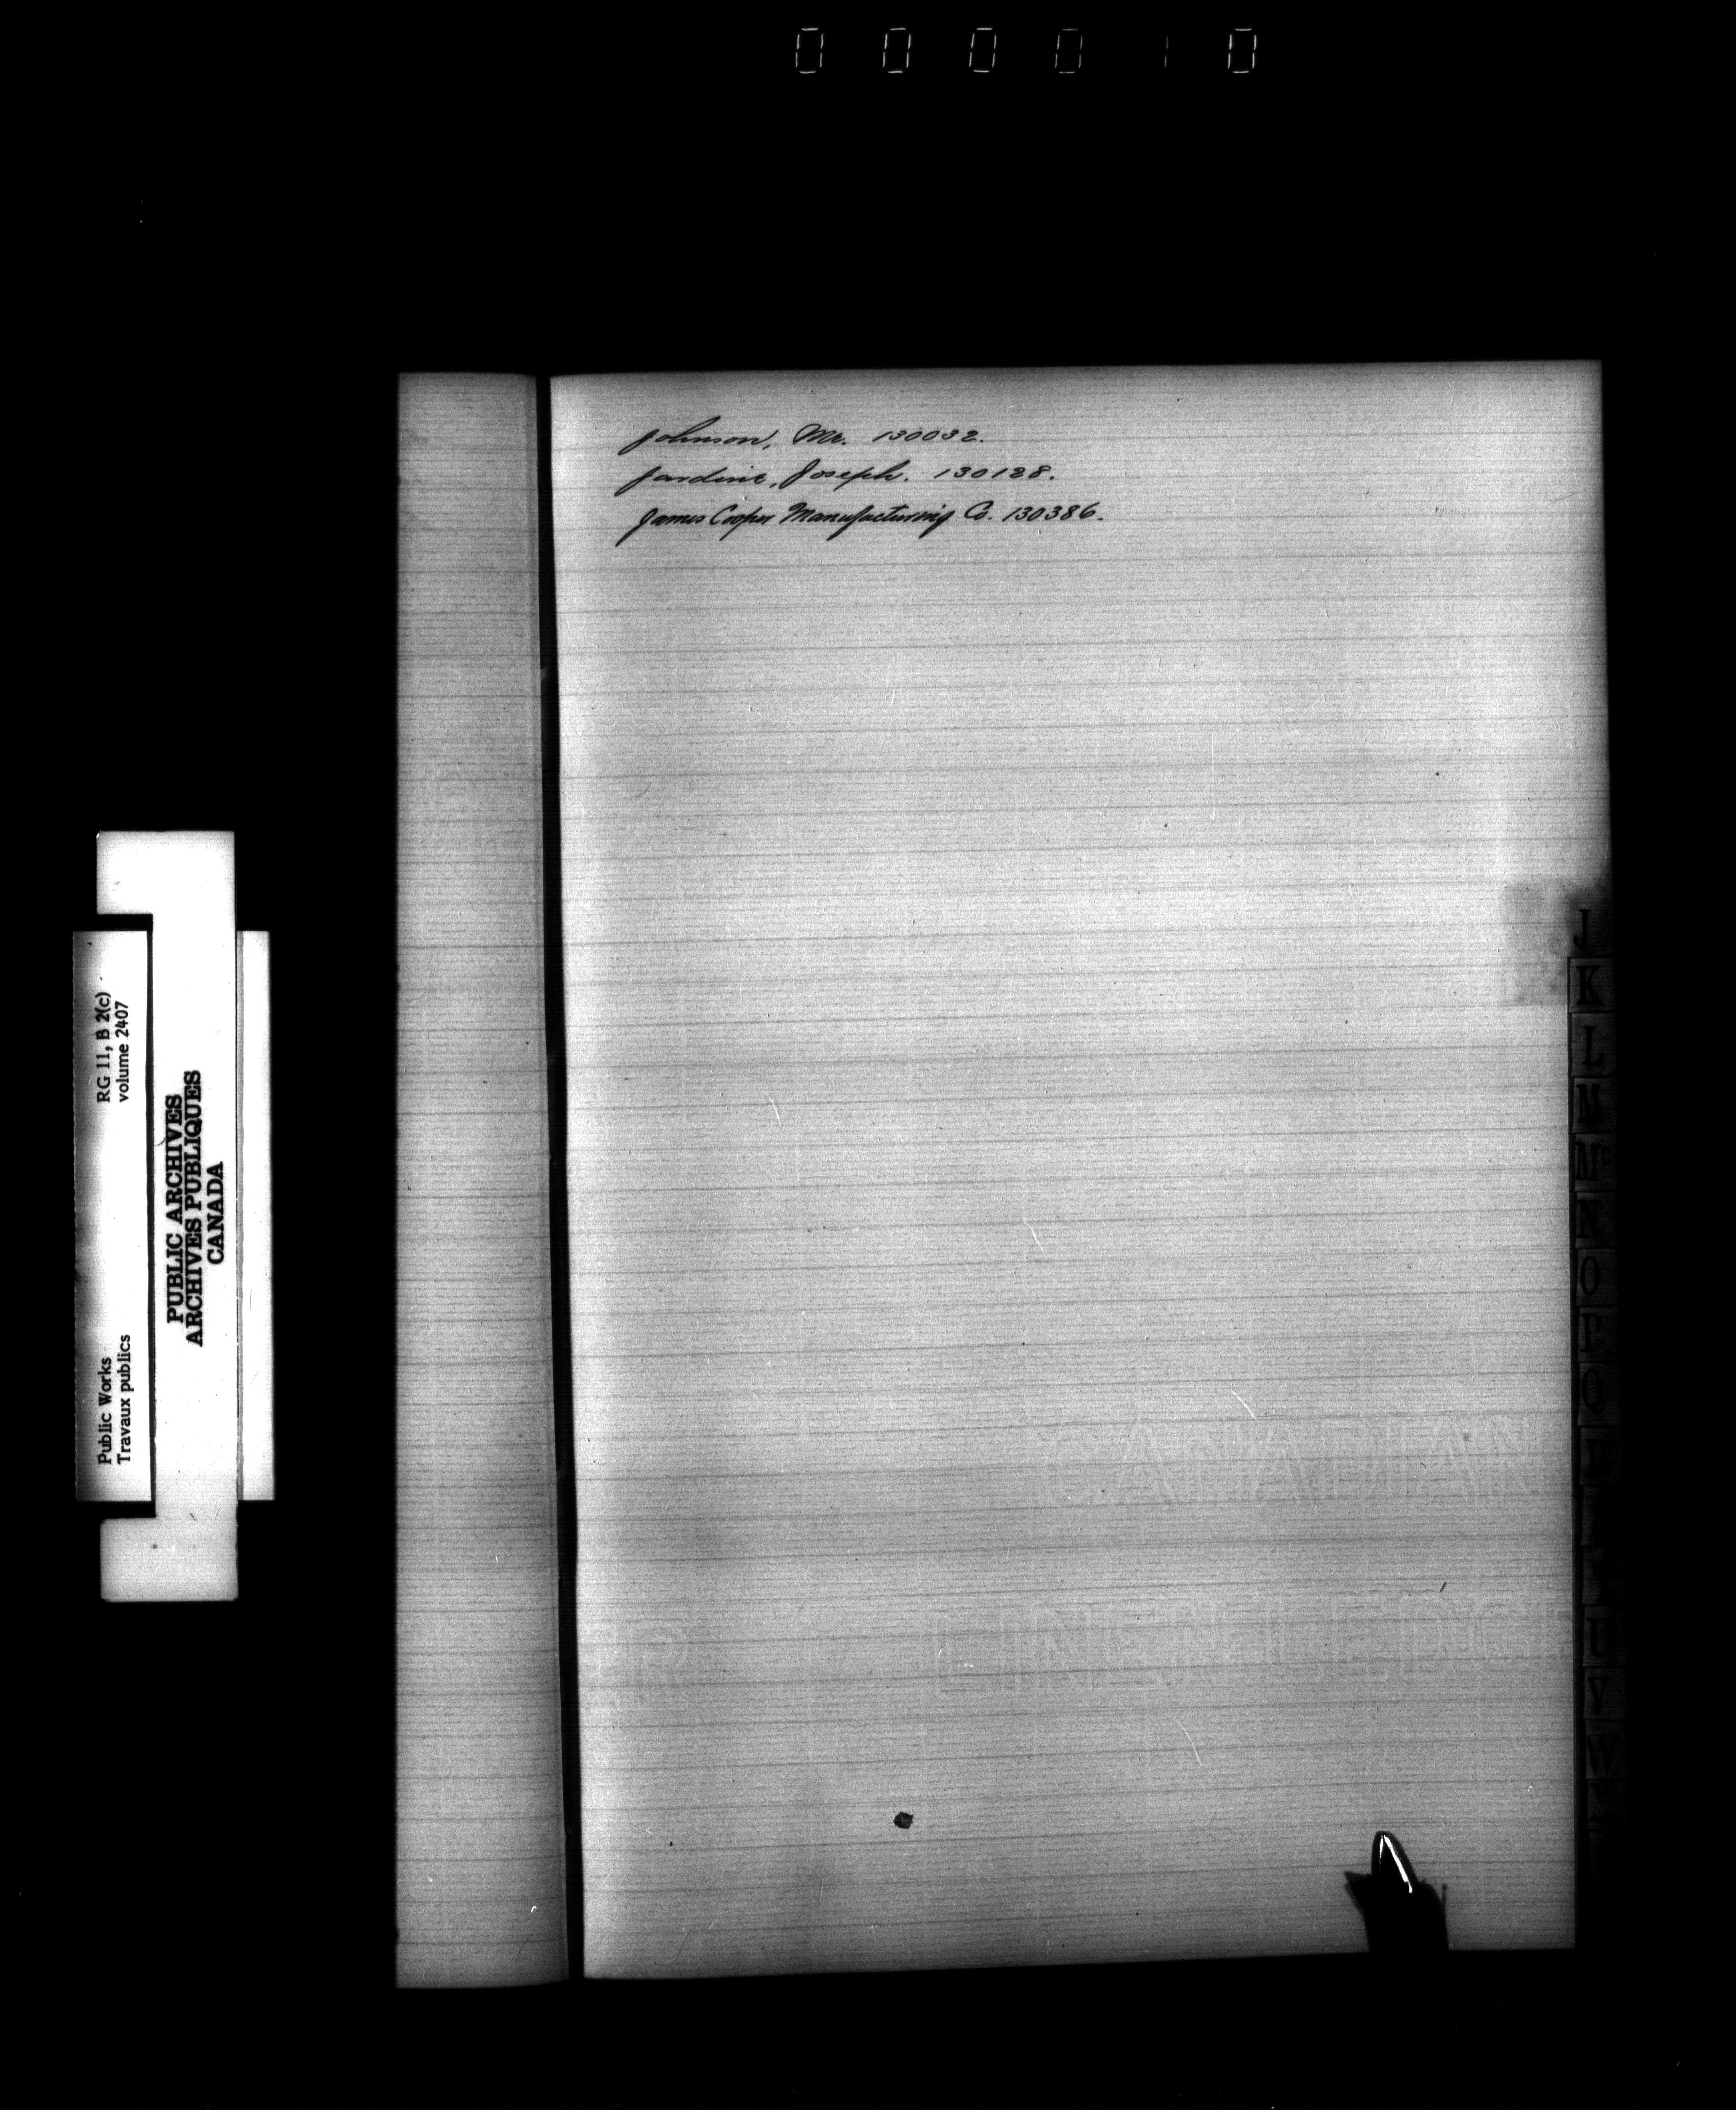 000010
Johnson, Mr. 130032.
Jardine, Joseph. 130128.
James Cooper Manufacturing Co. 130386.
J
K
L
M
Mc
N
O
P
Q
R
U
V
W
CANADIAN
LINEN LEDGE
R
Public Works
Travaux publics
RG 11, B 2(c)
volume 2407
PUBLIC ARCHIVES
ARCHIVES PUBLIQUES
CANADA